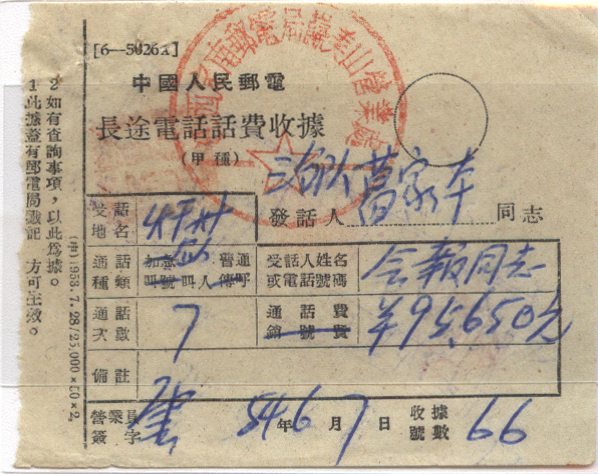 [6—5026A]
中國人民郵電
長途電話話費收據
(甲種)
發話人 同志
受話地名
通話種類 加急 普通 叫號 叫人 傳呼
受話人姓名或電話號碼 同志
通話次數 7
通話費 銷號費 ¥95,650元
備註
營業員簽字 54年6月7日 收據號數 66
1 此據蓋有郵電局戳記 方可生效。
2 如有查詢事項，以此爲據。
(中)1953.7.28/25,000×50×2.